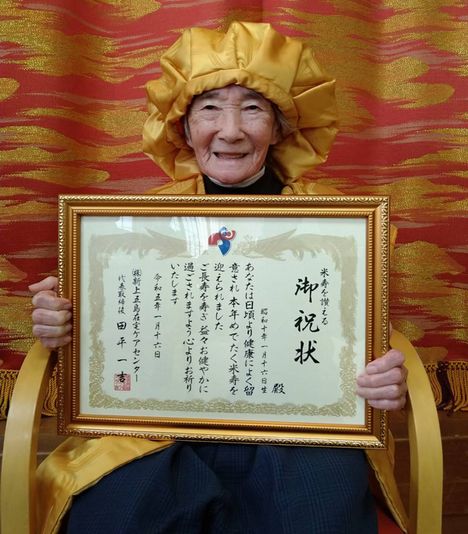 米寿を讃える
御祝状
殿
昭和十年一月十六日生
あなたは日頃より健康によく留
意され本年めでたく米寿を
迎えられました
ご長寿を寿ぎ益々お健やかに
過ごされますよう心よりお祈り
いたします
令和五年一月十六日
㈱新上五島在宅ケアセンター
代表取締役 田平一吉